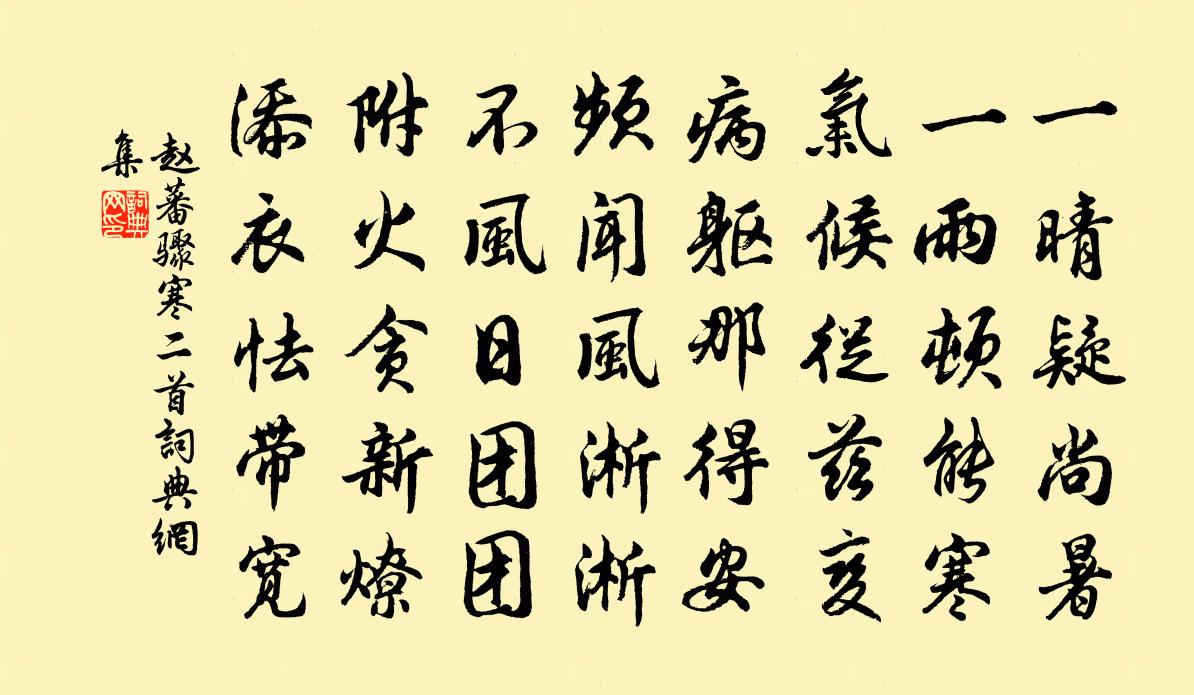 一晴疑尚暑
一雨頓能寒
氣候從兹变
病躯那得安
频闻風淅淅
不風日团团
附火贪新燎
添衣怯带宽
赵蕃骤寒二首詞典網
集
詞典網印